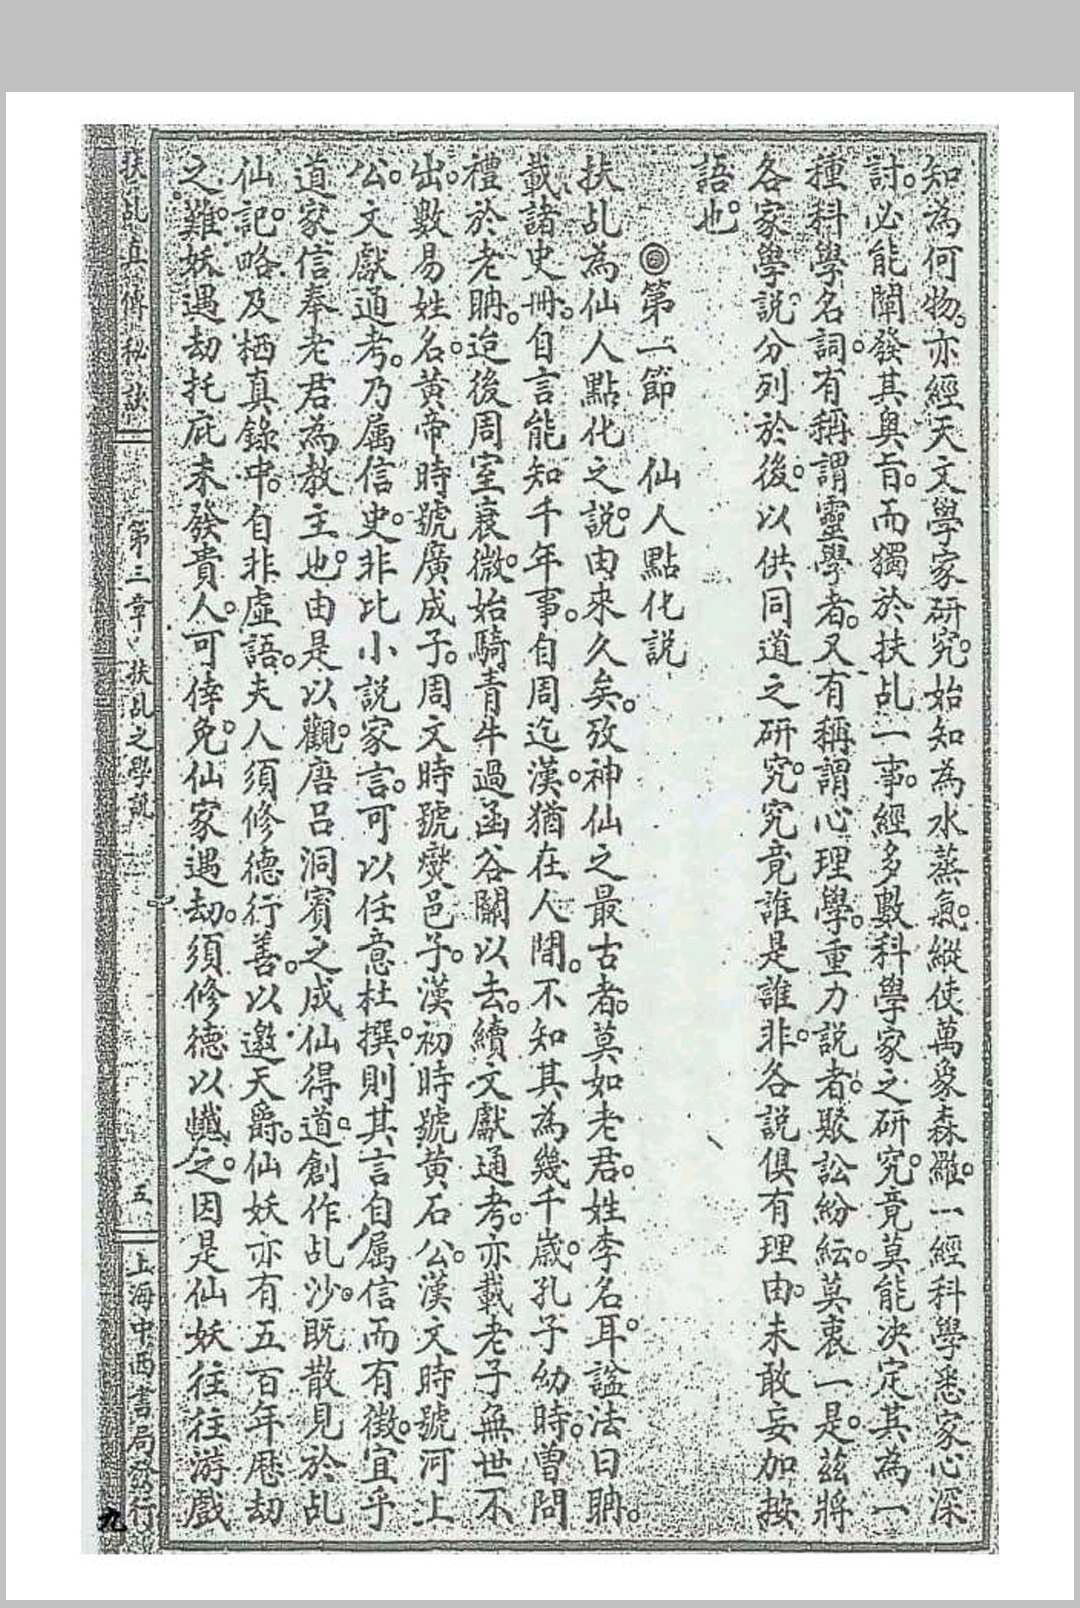 知為何物。亦經天文學家研究。始知為水蒸氣。縱使萬象森羅。一經科學悉家心深
討。必能闡發其奥旨。而獨於扶乩一事。經多數科學家之研究。竟莫能決定其為一
種科學名詞。有稱謂靈學者。又有稱謂心理學。重力説者。聚訟紛紜。莫衷一是。茲將
各家學説。分列於後。以供同道之研究。究竟誰是誰非。各説俱有理由。未敢妄加按
語也。
◎第一節　仙人點化説
扶乩為仙人點化之説。由來久矣。攷神仙之最古者。莫如老君。姓李名耳。諡法曰聃。
載諸史冊。自言能知千年事。自周迄漢。猶在人間。不知其為幾千歲。孔子幼時。曾問
禮於老聃。迨後周室衰微。始騎青牛過函谷關以去。續文獻通考。亦載老子無世不
出。數易姓名。黄帝時號廣成子。周文時號爕邑子。漢初時號黄石公。漢文時號河上
公。文獻通考。乃属信史。非比小説家言。可以任意杜撰。則其言自属信而有徵。宜乎
道家信奉老君為教主也。由是以觀。唐吕洞賓之成仙得道。創作乩沙。既散見於乩
仙記略。及栖真錄中。自非虛語。夫人須修德行善。以邀天爵。仙妖亦有五百年厄劫
之難。妖遇劫托庇未發貴人。可倖免。仙家遇劫。須修德以懺之。因是仙妖往往游戲
扶乩真傳秘訣　第三章　扶乩之學説　五　上海中西書局發行
九